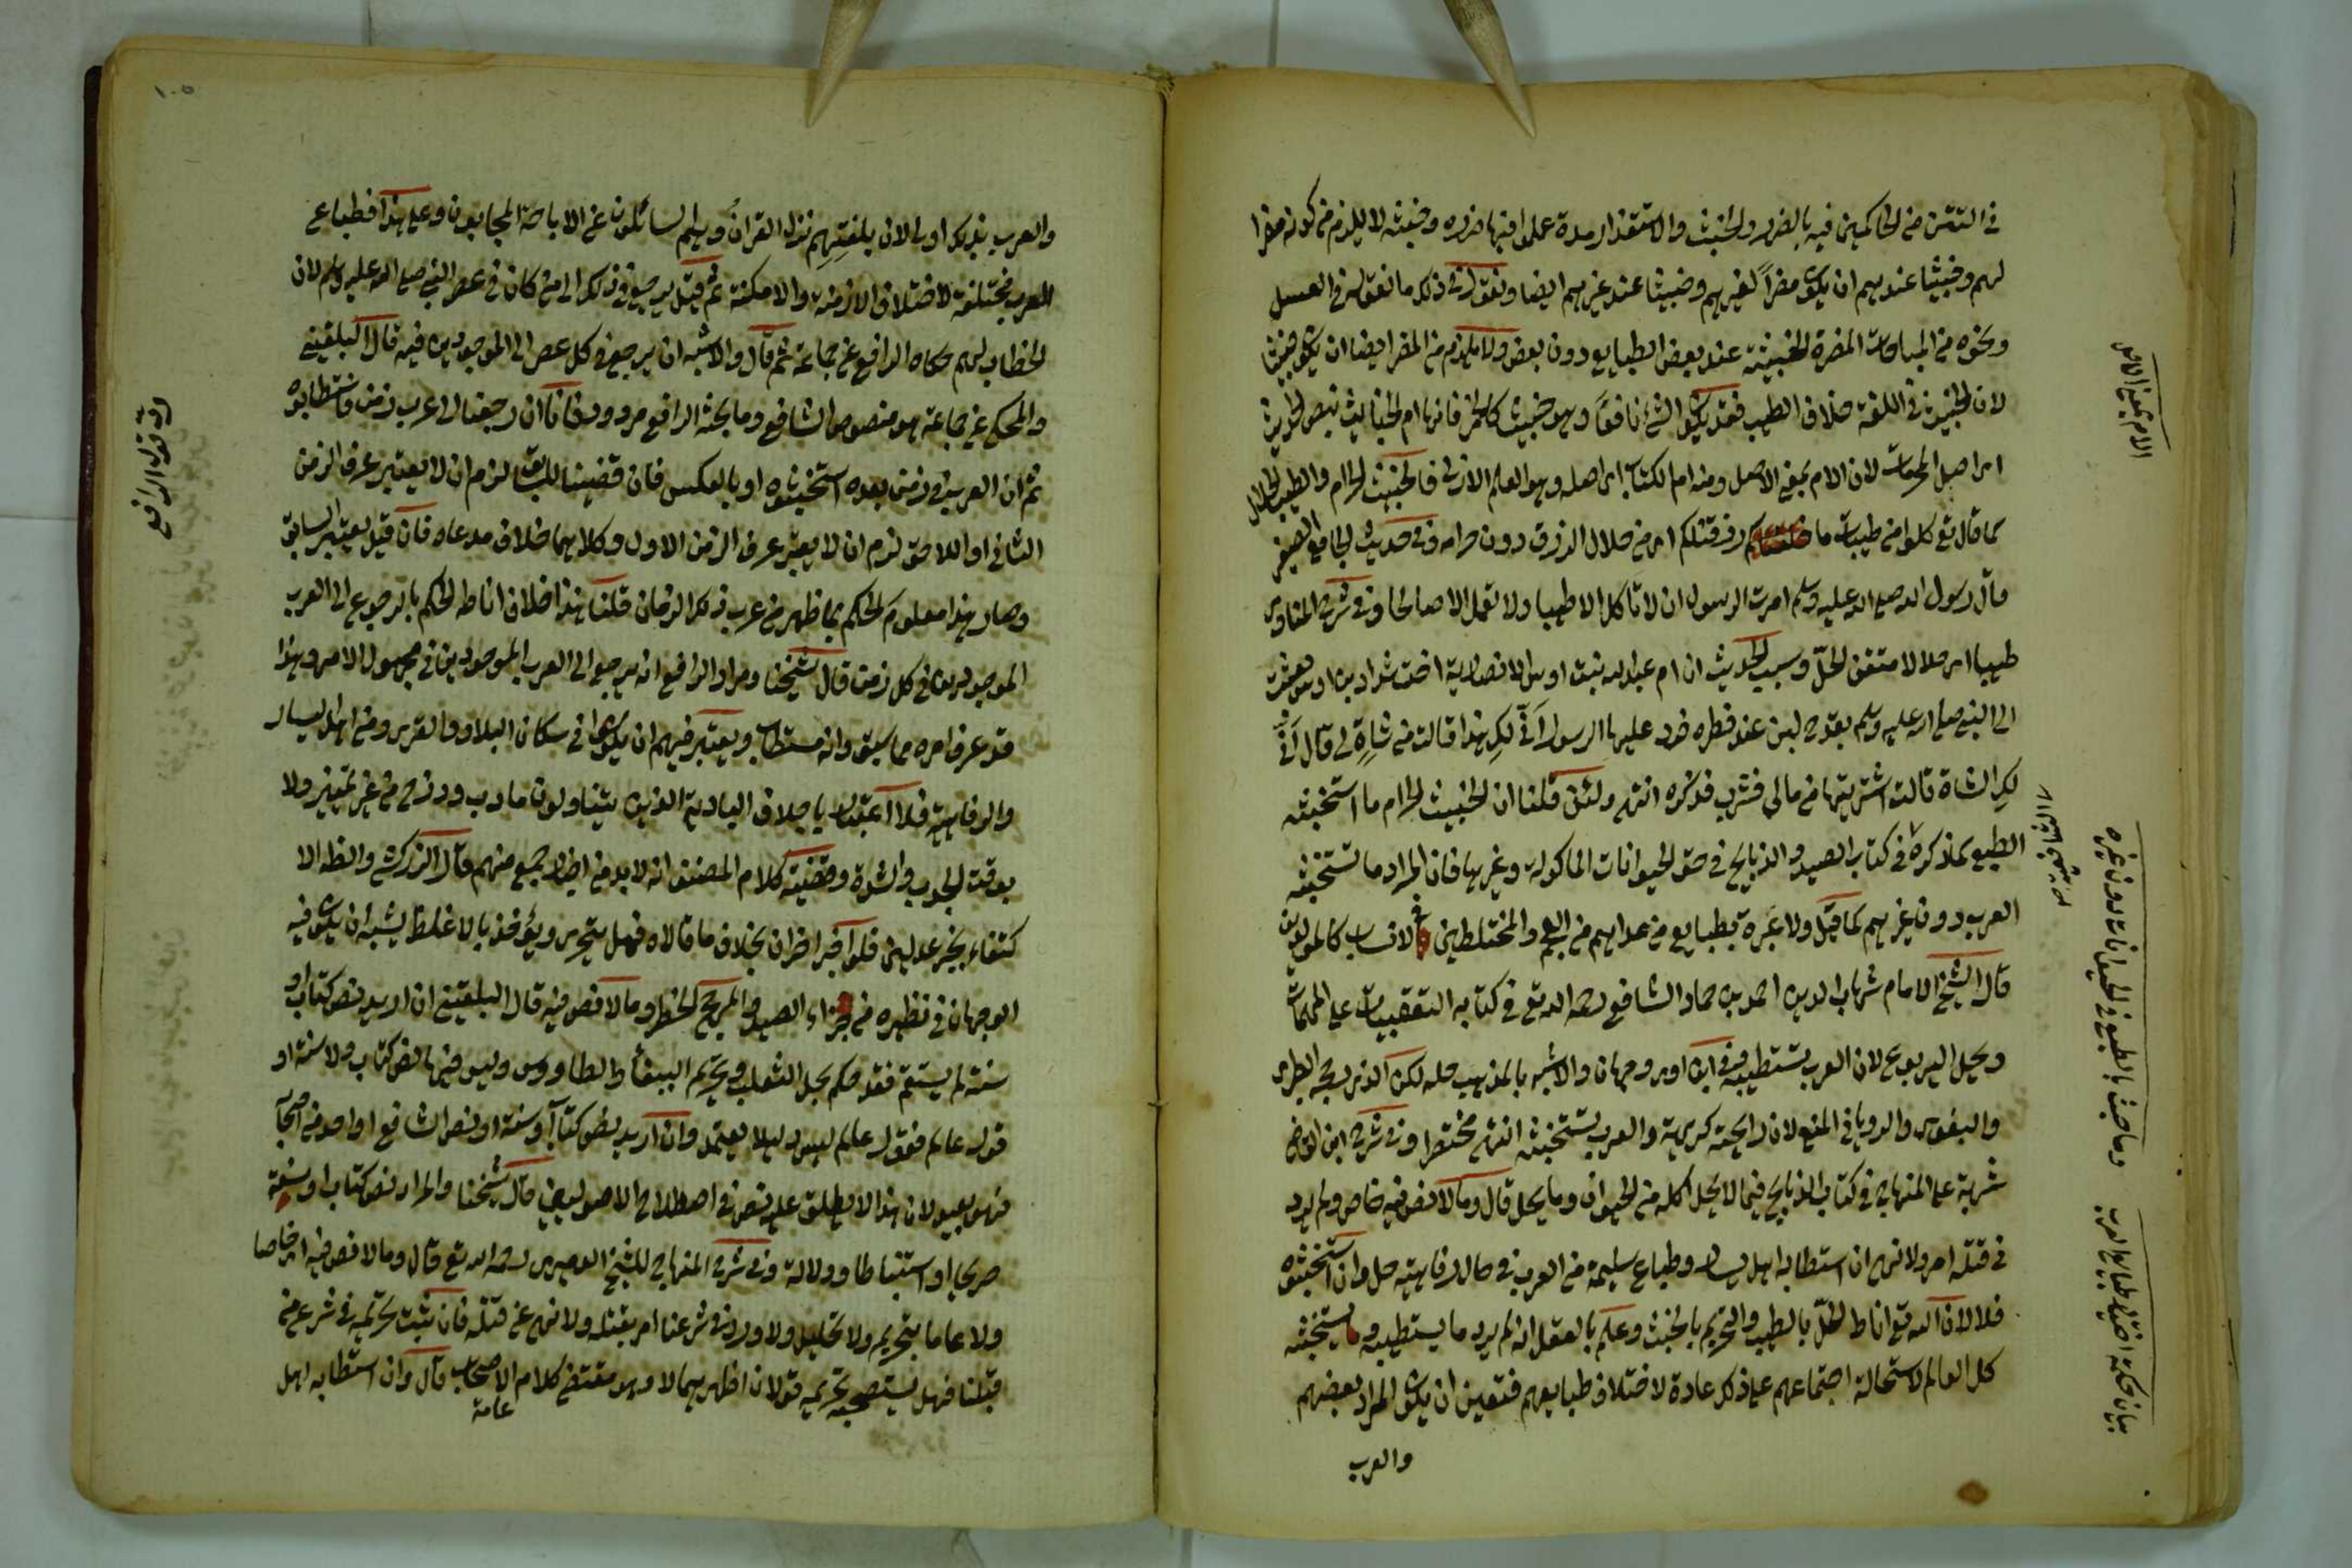 في التتن من الحاكمين فيه بالضرر والخبث والاستقذار مدة علموا فيها ضرره وخبثه لا يلزم من كونه مضرا
لهم وخبيثا عندهم ان يكون مضراً لغيرهم وخبيثا عند غيرهم ايضا ونقول في ذلك ما نقول في العسل
ونحوه من المباحات المضرة الخبيثة عند بعض الطبايع دون بعض ولا يلزم من المضر ايضا ان يكون خبيثا
لان الخبيث في اللغة خلاف الطيب فقد يكون الشئ نافعاً وهو خبيث كالخمر فانها ام الخبايث بنص الحديث
اي اصل الخبايث لان الام بمعنى الاصل ومنه ام الكتاب اي اصله وهو العلم الازلي فالخبيث الحرام والطيب الحلال
كما قال تع كلوا من طيبات ما رزقناكم اي من حلال الرزق دون حرامه وفي حديث الجامع الصغير
قال رسول الله صلى الله عليه وسلم امرت الرسول ان لا تاكل الا طيبا ولا تعمل الا صالحا وفي شرح المناوي
طيبا اي حلالا متقن الحلّ وسبب الحديث ان ام عبد الله بنت اوس الانصارية اخت شداد بن اوس بعثت
الى النبي صلى الله عليه وسلم بقدح لبن عند فطره فرد عليها الرسول أنّى لكِ هذا قالت من شاةٍ لي قال أنّى
لكِ الشاة قالت اشتريتها من مالي فشرب فذكره انتهى ولئن قلنا ان الخبيث الحرام ما استخبثه
الطبع كما ذكره في كتاب الصيد والذبايح في حق الحيوانات الماكولة وغيرها فان المراد ما تستخبثه
العرب دون غيرهم كما قيل ولا عبرة بطبايع من عداهم من العجم والمختلطين في الانساب كالمولدين
قال الشيخ الامام شهاب الدين احمد بن عماد الشافعي رحمه الله تع في كتابه التعقبات على المهمات
ويحل اليربوع لان العرب تستطيبه وفي ابن اوى وجهان والاشبه بالمذهب حله لكن الذي رجحه الطبري
والبغوي والروياني المنع لان رايحته كريهة والعرب تستخبثه انتهى مختصرا وفي شرح ابن القاضي
شهبة على المنهاج في كتاب الذبايح فيما لا يحل اكله من الحيوان وما يحل قال وما لا نص فيه خاص ولم يرد
في قتله امر ولا نهي ان استطابه اهل يسار وطباع سليمة من العرب في حال رفاهية حل وان استخبثوه
فلا لان الله تع اناط الحل بالطيب والتحريم بالخبث وعلم بالعقل انه لم يرد ما يستطيبه ويستخبثه
كل العالم لاستحالة اجتماعهم على ذلك عادة لاختلاف طبايعهم فتعين ان يكون المراد بعضهم
والعرب
الام بمعنى الاصل
وما خبث بالطبع في الحيوانات دون غيره
بيان حكمة اختيار طبايع العرب
١٠٥
والعرب بذلك اولى لان بلغتهم نزل القرآن وهم السائلون عن الاباحة المجابون وعلى هذا فطباع
العرب مختلفة لاختلاف الازمنة والامكنة ثم قيل يرجع في ذلك الى من كان في عصر النبي صلى الله عليه وسلم لان
الخطاب لهم حكاه الرافعي عن جماعة ثم قال والاشبه ان يرجع في كل عصر الى الموجودين فيه قال البلقيني
والمحكي عن جماعة هو منصوص الشافعي وما بحثه الرافعي مردود فانا ان رجعنا الى عرب زمن فاستطابوه
ثم ان العرب في زمن بعده استخبثوه او بالعكس فان قضينا للسابق لزم ان لا يعتبر عرف الزمن
الثاني او اللاحق لزم ان لا يعتبر عرف الزمن الاول وكلاهما خلاف مدعاه فان قيل يعتبر السابق
وصار هذا معلوم الحكم بما ظهر من عرب ذلك الزمان قلنا هذا خلاف اناطة الحكم بالرجوع الى العرب
الموجودين في كل زمن قال شيخنا ومراد الرافعي انه يرجع الى العرب الموجودين في مجهول الامر وهذا
قد عرف امره مما سبق وانه مستطاب ويعتبر فيهم ان يكونوا من سكان البلاد والقرى ومن اهل اليسار
والرفاهية فلا اعتبار باجلاف البادية الذين يتناولون ما دب ودرج من غير تمييز ولا
بوقت الجدب والشدة وقضية كلام المصنف انه لابد من اخبار جمع منهم قال الزركشي والظاهر الا
كتفاء بخبر عدلين فلو اخبر اخران بخلاف ما قالاه فهل يتحرى ويؤخذ بالاغلظ يشبه ان يكون فيه
الوجهان في نظيره من جزاء الصيد والمرجح الحظر وما لا نص فيه قال البلقيني ان اريد نص كتاب او
سنة لم يستقم فقد حكم بحل الثعلب وتحريم الببغاء والطاووس وليس فيها نص كتاب ولا سنة او
قول عالم فقول عالم ليس دليلا يعتمد وان اريد نص كتاب وسنة او نص الشافعي او احد من اصحابه
فهو بعيد لان هذا لا يطلق عليه نص في اصطلاح الاصوليين قال شيخنا والمراد نص كتاب او سنة
صريحا او استنباطا ودلالة وفي شرح المنهاج للشيخ الدميري رحمه الله تع قال وما لا نص فيه اي خاصا
ولا عاما بتحريم ولا تحليل ولا ورد في شرعنا امر بقتله ولا نهي عن قتله فان ثبت تحريمه في شرع من
قبلنا فهل يستصحب تحريمه قولان اظهرهما لا وهو مقتضى كلام عامة الاصحاب قال وان استطابه اهل